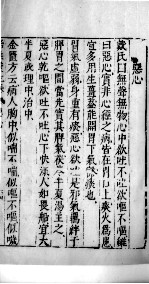 惡心
戴氏曰無聲無物心中欲吐不吐欲嘔不嘔雖
曰惡心實非心經之病皆在胃口上痰火爲患
宜多用生薑蓋能開胃豁痰也
胃氣虛弱身重有痰惡心欲吐是邪氣羈絆于
脾胃之間當先實其脾氣茯苓半夏湯主之
惡心乾嘔欲吐不吐心下快漾人如畏船宜大
半夏或理中治中
金匱方云病人胸中似喘不喘似嘔不嘔似噦